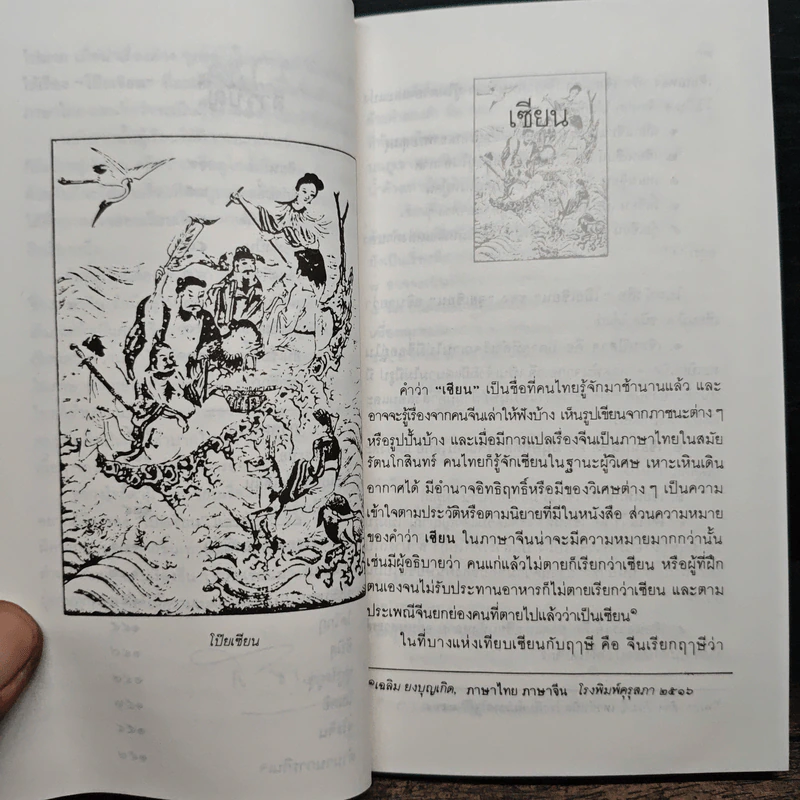 โป๊ยเซียน
เซียน
คำว่า “เซียน” เป็นชื่อที่คนไทยรู้จักมาช้านานแล้ว และ
อาจจะรู้เรื่องจากคนจีนเล่าให้ฟังบ้าง เห็นรูปเซียนจากภาชนะต่างๆ
หรือรูปปั้นบ้าง และเมื่อมีการแปลเรื่องจีนเป็นภาษาไทยในสมัย
รัตนโกสินทร์ คนไทยก็รู้จักเซียนในฐานะผู้วิเศษ เหาะเหินเดิน
อากาศได้ มีอำนาจอิทธิฤทธิ์หรือมีของวิเศษต่างๆ เป็นความ
เข้าใจตามประวัติหรือตามนิยายที่มีในหนังสือ ส่วนความหมาย
ของคำว่า เซียน ในภาษาจีนน่าจะมีความหมายมากกว่านั้น
เช่นมีผู้อธิบายว่า คนแก่แล้วไม่ตายก็เรียกว่าเซียน หรือผู้ที่ฝึก
ตนเองจนไม่รับประทานอาหารก็ไม่ตายเรียกว่าเซียน และตาม
ประเพณีจีนยกย่องคนที่ตายไปแล้วว่าเป็นเซียน๑
ในที่บางแห่งเทียบเซียนกับฤๅษี คือ จีนเรียกฤๅษีว่า
๑เฉลิม ยงบุญเกิด, ภาษาไทย ภาษาจีน โรงพิมพ์คุรุสภา ๒๕๑๖